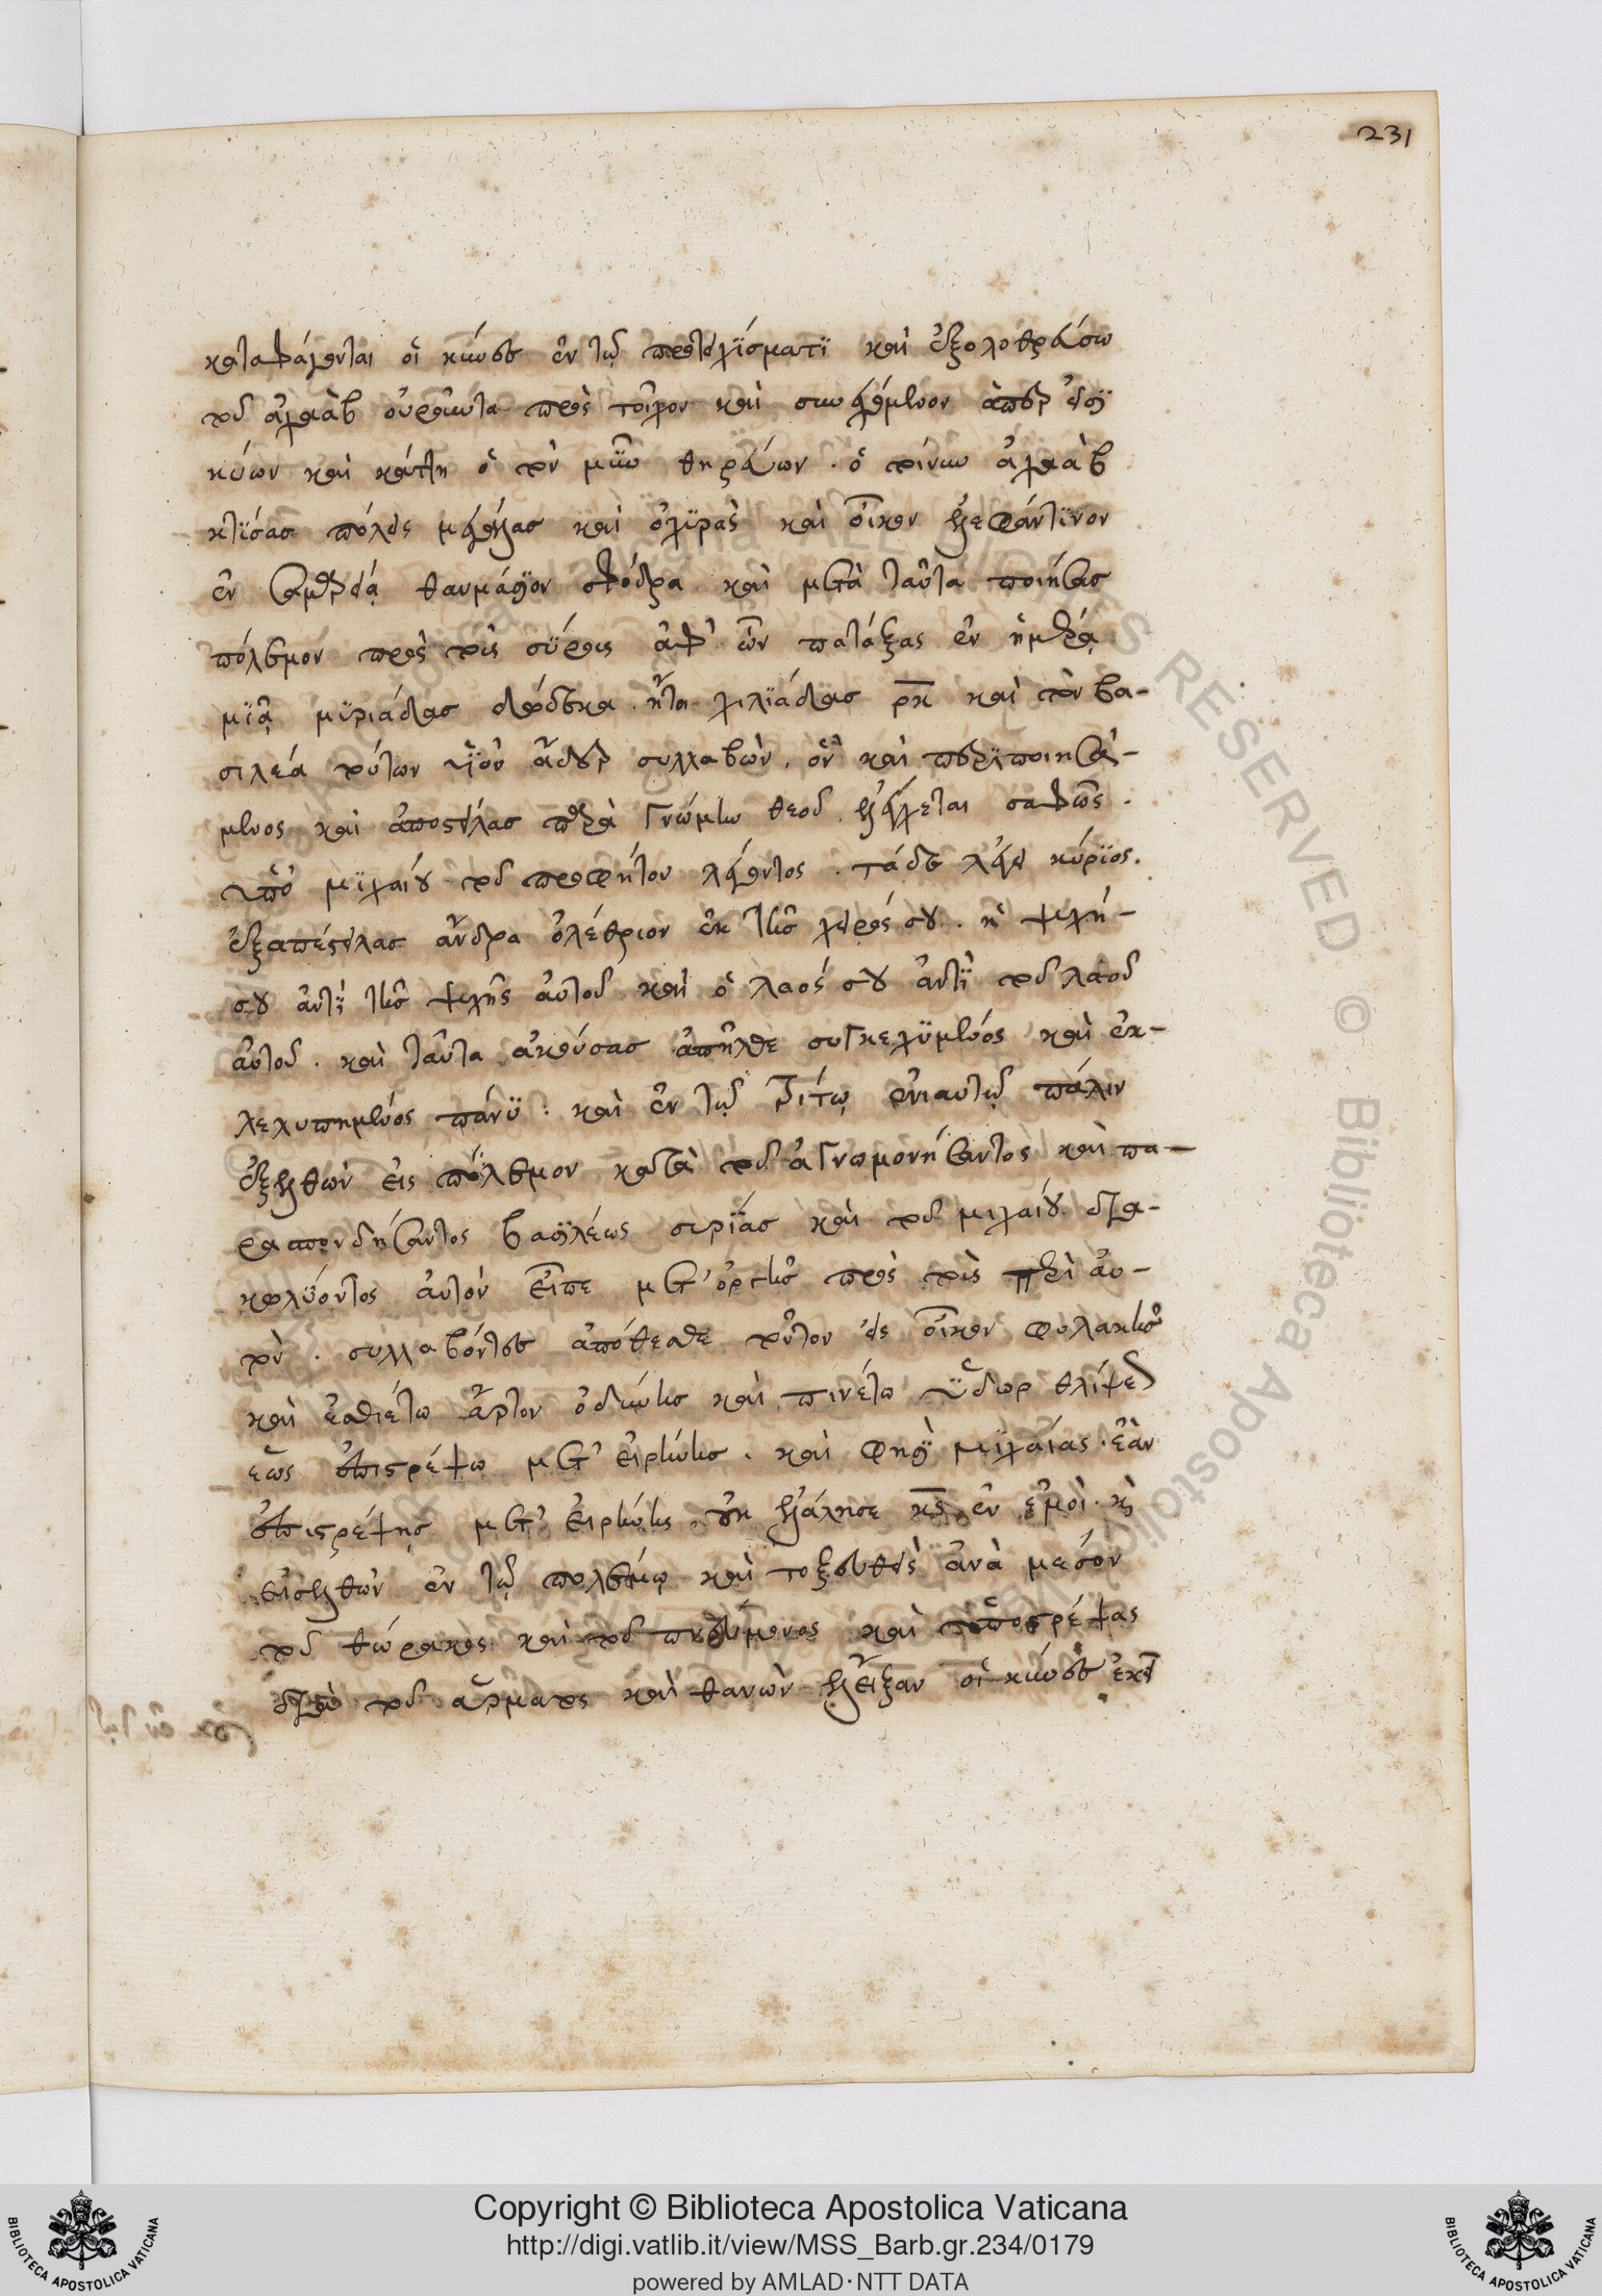 231
καταφάγονται οἱ κύνες ἐν τῷ προτειχΐσματϊ καὶ ἐξολοθρεύσω
τοῦ ἀχαὰβ οὐροῦντα πρὸς τοῖχον καὶ συνεχόμενον
κύων καὶ ὁ τὸν θηρεύων. ὁ τοίνυν ἀχαὰβ
κτϊσας πόλεις μεγάλας καὶ ὀχϋρὰς καὶ οἶκον ἐλεφάντϊνον
ἐν σαμαρεία θαυμάσϊον σφόδρα καὶ μετὰ ταῦτα ποιήσας
πόλεμον πρὸς τοὺς σύρους ἀφ' ὧν πατάξας ἐν ἡμέρᾳ
μϊᾷ μϋριάδας δώδεκα ἤτοι χιλϊάδας ρκ καὶ τὸν βα-
σιλέα τούτων ϋἱὸν ἄδερ συλλαβὼν, ὃν καὶ περϊποιησά-
μενος καὶ ἀποστείλας παρὰ γνώμην θεοῦ ἐλέγχεται σαφῶς.
ὑπὸ μϊχαίου τοῦ προφήτου λέγοντος. τάδε λέγει κύρϊος.
ἐξαπέστειλας ἄνδρα ὀλέθριον ἐκ τῆς χειρός σου. ἡ ψυχή
σου ἀντϊ τῆς ψυχῆς αὐτοῦ καὶ ὁ λαός σου ἀντϊ τοῦ λαοῦ
αὐτοῦ. καὶ ταῦτα ἀκούσας ἀπῆλθε συγκεχϋμένος καὶ ἐκ-
λελυπημένος πάνϋ: καὶ ἐν τῷ τρίτῳ ἐνιαυτῷ πάλιν
ἐξελθὼν εἰς πόλεμον κατὰ τοῦ ἀγνωμονήσαντος καὶ πα-
ρασπονδήσαντος βασϊλέως συρϊας καὶ τοῦ μιχαίου δια-
κωλϋοντος αὐτὸν εἶπε μετ' ὀργῆς πρὸς τοὺς περὶ αὐ-
τὸν. συλλαβόντες ἀπόθεσθε τοῦτον εἰς οἶκον φυλακῆς
καὶ ἐσθιέτω ἄρτον ὀδύνης καὶ πινέτω ϋδωρ θλίψεως
ἕως ἐπιστρέψω μετ' εἰρήνης. καὶ φησϊ μϊχαίας. ἐὰν
ἐπιστρέψῃς μετ' εἰρήνης, οὐκ ἐλάλησε κς ἐν ἐμοὶ. καὶ
εἰσελθὼν ἐν τῷ πολέμῳ καὶ τοξευθεὶς ἀνὰ μεσὸν
τοῦ θώρακος καὶ τοῦ πνεύμονος καὶ ὑποστρέψας
διὰ τοῦ ἅρματος καὶ θανὼν ἔλειξαν οἱ κύνες ἐκεῖ
Copyright © Biblioteca Apostolica Vaticana
http://digi.vatlib.it/view/MSS_Barb.gr.234/0179
powered by AMLAD·NTT DATA